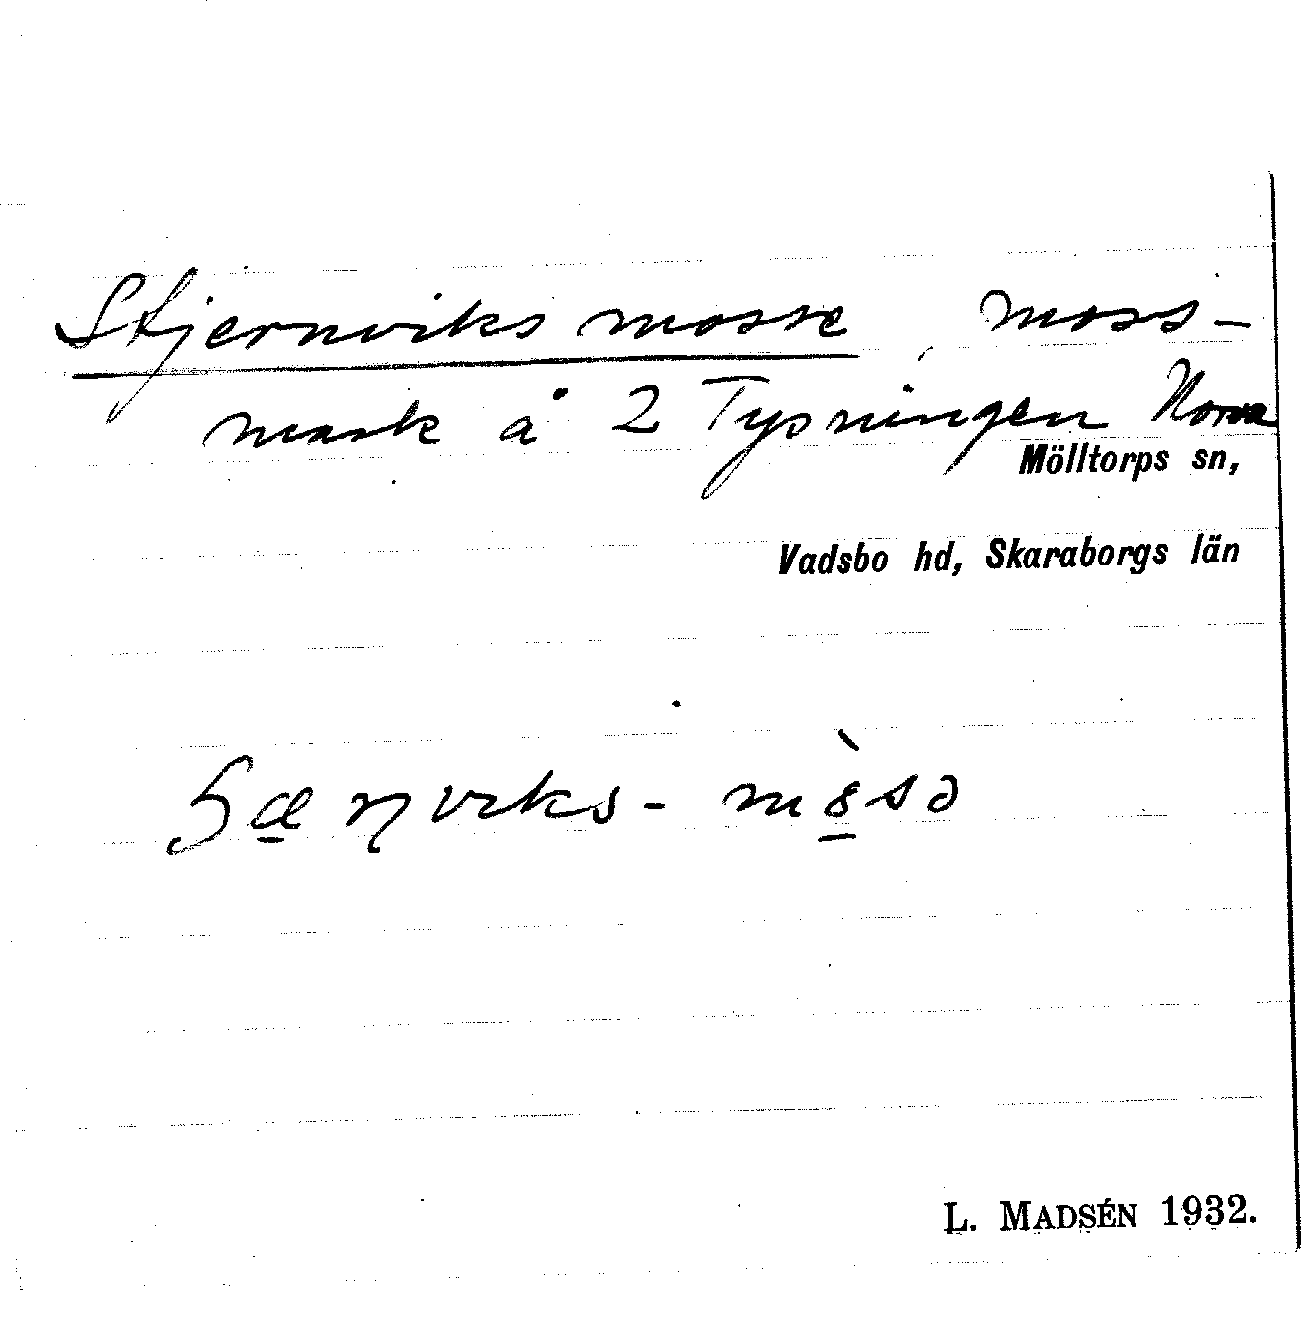 Stjernviks mosse, moss-
mark å 2 Tysningen Norra
Mölltorps sn,
Vadsbo hd, Skaraborgs län
L. MADSÉN 1932.